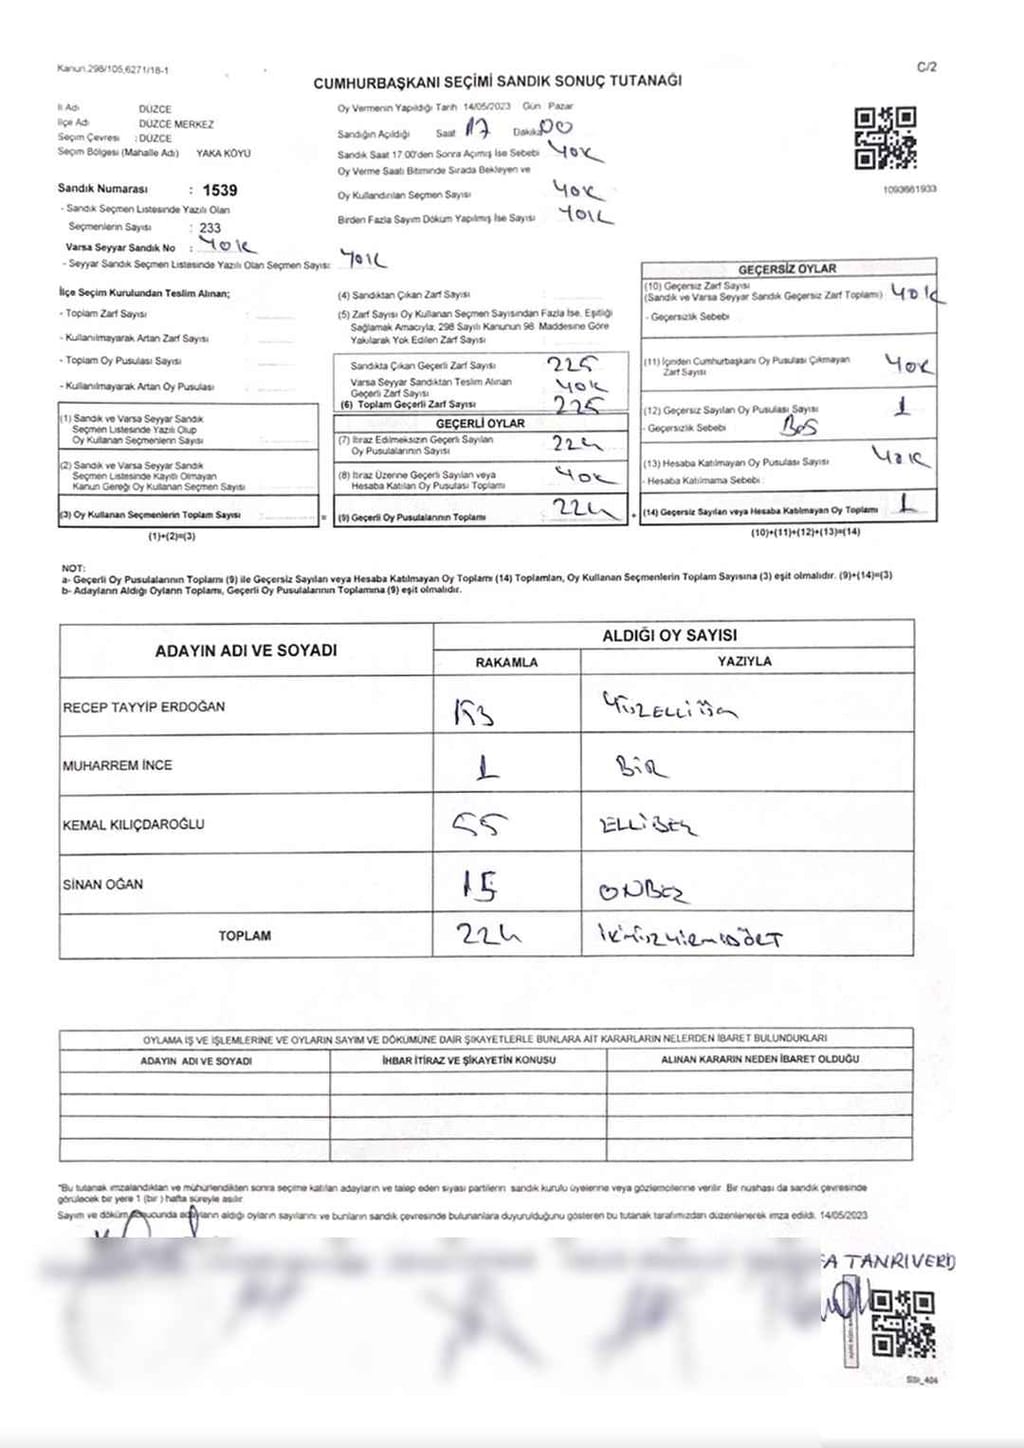 Kanun.298/105,6271/18-1
C/2
CUMHURBAŞKANI SEÇİMİ SANDIK SONUÇ TUTANAĞI
İl Adı DÜZCE
İlçe Adı DÜZCE MERKEZ
Seçim Çevresi : DÜZCE
Seçim Bölgesi (Mahalle Adı) YAKA KÖYÜ
Sandık Numarası : 1539
- Sandık Seçmen Listesinde Yazılı Olan
Seçmenlerin Sayısı : 233
Varsa Seyyar Sandık No : YOK
- Seyyar Sandık Seçmen Listesinde Yazılı Olan Seçmen Sayısı: YOK
Oy Vermenin Yapıldığı Tarih 14/05/2023 Gün Pazar
Sandığın Açıldığı Saat 17 Dakika 00
Sandık Saat 17:00'den Sonra Açımış İse Sebebi YOK
Oy Verme Saati Bitiminde Sırada Bekleyen ve
Oy Kullandırılan Seçmen Sayısı YOK
Birden Fazla Sayım Döküm Yapılmış İse Sayısı YOK
1093661933
İlçe Seçim Kurulundan Teslim Alınan;
- Toplam Zarf Sayısı
- Kullanılmayarak Artan Zarf Sayısı
- Toplam Oy Pusulası Sayısı
- Kullanılmayarak Artan Oy Pusulası
(1) Sandık ve Varsa Seyyar Sandık
Seçmen Listesinde Yazılı Olup
Oy Kullanan Seçmenlerin Sayısı
(2) Sandık ve Varsa Seyyar Sandık
Seçmen Listesinde Kayıtlı Olmayan
Kanun Gereği Oy Kullanan Seçmen Sayısı
(3) Oy Kullanan Seçmenlerin Toplam Sayısı
(1)+(2)=(3)
(4) Sandıktan Çıkan Zarf Sayısı
(5) Zarf Sayısı Oy Kullanan Seçmen Sayısından Fazla İse, Eşitliği
Sağlamak Amacıyla, 298 Sayılı Kanunun 98. Maddesine Göre
Yakılarak Yok Edilen Zarf Sayısı
Sandıkta Çıkan Geçerli Zarf Sayısı 225
Varsa Seyyar Sandıktan Teslim Alınan
Geçerli Zarf Sayısı YOK
(6) Toplam Geçerli Zarf Sayısı 225
GEÇERLİ OYLAR
(7) İtiraz Edilmeksizin Geçerli Sayılan
Oy Pusulalarının Sayısı 224
(8) İtiraz Üzerine Geçerli Sayılan veya
Hesaba Katılan Oy Pusulası Toplamı YOK
= (9) Geçerli Oy Pusulalarının Toplamı 224
GEÇERSİZ OYLAR
(10) Geçersiz Zarf Sayısı
(Sandık ve Varsa Seyyar Sandık Geçersiz Zarf Toplamı) YOK
- Geçersizlik Sebebi
(11) İçinden Cumhurbaşkanı Oy Pusulası Çıkmayan
Zarf Sayısı YOK
(12) Geçersiz Sayılan Oy Pusulası Sayısı 1
- Geçersizlik Sebebi BOŞ
(13) Hesaba Katılmayan Oy Pusulası Sayısı YOK
- Hesaba Katılmama Sebebi :
+ (14) Geçersiz Sayılan veya Hesaba Katılmayan Oy Toplamı 1
(10)+(11)+(12)+(13)=(14)
NOT:
a- Geçerli Oy Pusulalarının Toplamı (9) ile Geçersiz Sayılan veya Hesaba Katılmayan Oy Toplamı (14) Toplamları, Oy Kullanan Seçmenlerin Toplam Sayısına (3) eşit olmalıdır. (9)+(14)=(3)
b- Adayların Aldığı Oyların Toplamı, Geçerli Oy Pusulalarının Toplamına (9) eşit olmalıdır.
ADAYIN ADI VE SOYADI
ALDIĞI OY SAYISI
RAKAMLA YAZIYLA
RECEP TAYYİP ERDOĞAN 153 YÜZELLİÜÇ
MUHARREM İNCE 1 BİR
KEMAL KILIÇDAROĞLU 55 ELLİBEŞ
SİNAN OĞAN 15 ONBEŞ
TOPLAM 224 İKİYÜZYİRMİDÖRT
OYLAMA İŞ VE İŞLEMLERİNE VE OYLARIN SAYIM VE DÖKÜMÜNE DAİR ŞİKAYETLERLE BUNLARA AİT KARARLARIN NELERDEN İBARET BULUNDUKLARI
ADAYIN ADI VE SOYADI
İHBAR İTİRAZ VE ŞİKAYETİN KONUSU
ALINAN KARARIN NEDEN İBARET OLDUĞU
"Bu tutanak imzalandıktan ve mühürlendikten sonra seçime katılan adayların ve talep eden siyasi partilerin sandık kurulu üyelerine veya gözlemcilerine verilir. Bir nushası da sandık çevresinde
görülecek bir yere 1 (bir) hafta süreyle asılır.
Sayım ve döküm sonucunda adayların aldığı oyların sayılarını ve bunların sandık çevresinde bulunanlara duyurulduğunu gösteren bu tutanak tarafımızdan düzenlenerek imza edildi. 14/05/2023
FA TANRIVERD